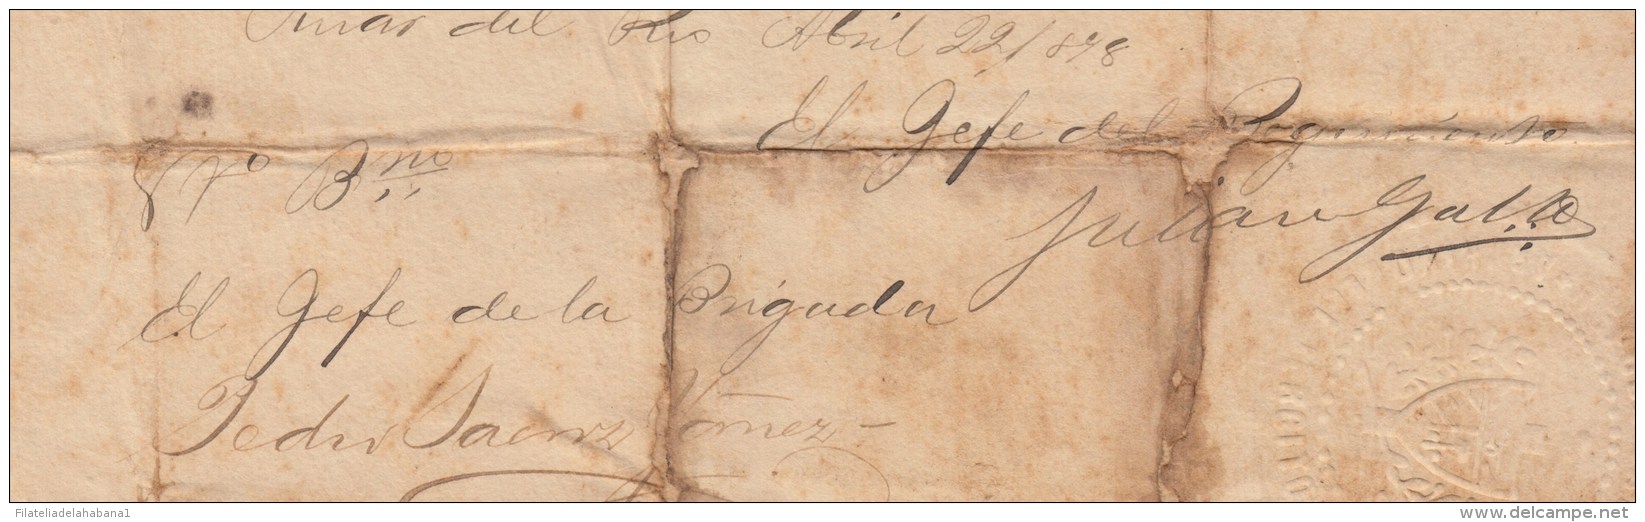 Pinar del Rio Abril 22/878
El Jefe del Regimiento.
Vo Bno
Julian Gal
El Jefe de la Brigada
Pedro Saenz Yañez
Filateliadelahabana1
delcampe.net